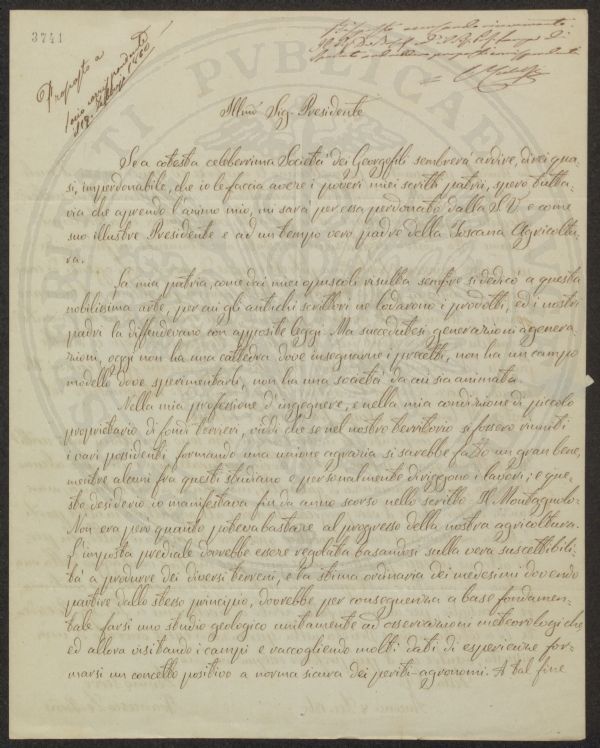 3741
Proposto a
socio corrispondente
Illmo Sig. Presidente
Se a cotesta celeberrima Società dei Georgofili sembrerà ardire, direi qua-
si, imperdonabile, che io le faccia avere i poveri miei scritti patrii, spero tutta-
via che aprendo l'animo mio, mi sarà per essa perdonato dalla S.V. e come
suo illustre Presidente e ad un tempo vero padre della Toscana Agricoltu-
ra.
La mia patria, come dai miei opuscoli risulta sempre si dedicò a questa
nobilissima arte, per cui gli antichi scrittori ne lodarono i prodotti, ed i nostri
padri la diffendevano con apposite leggi. Ma succedutesi generazioni a genera-
zioni, oggi non ha una cattedra dove insegnarne i precetti, non ha un campo
modello dove sperimentarli, non ha una società da cui sia animata.
Nella mia professione d'ingegnere, e nella mia condizione di piccolo
proprietario di fondi terrieri, vidi che se nel nostro territorio si fossero riuniti
i vari possidenti formando una unione agraria si sarebbe fatto un gran bene,
mentre alcuni fra questi studiano e personalmente diriggono i lavori; e que-
sto desiderio io manifestava fin da anno scorso nello scritto Il Montagnolo.
Non era però quanto poteva bastare al progresso della nostra agricoltura.
L'imposta prediale dovrebbe essere regolata basandosi sulla vera suscettibili-
tà a produrre dei diversi terreni, e la stima ordinaria dei medesimi dovendo
partire dallo stesso principio, dovrebbe per conseguenza a base fondamen-
tale farsi uno studio geologico unitamente ad osservazioni meteorologiche
ed allora visitando i campi e raccogliendo molti dati di esperienze for-
marsi un concetto positivo a norma sicura dei periti-agronomi. A tal fine